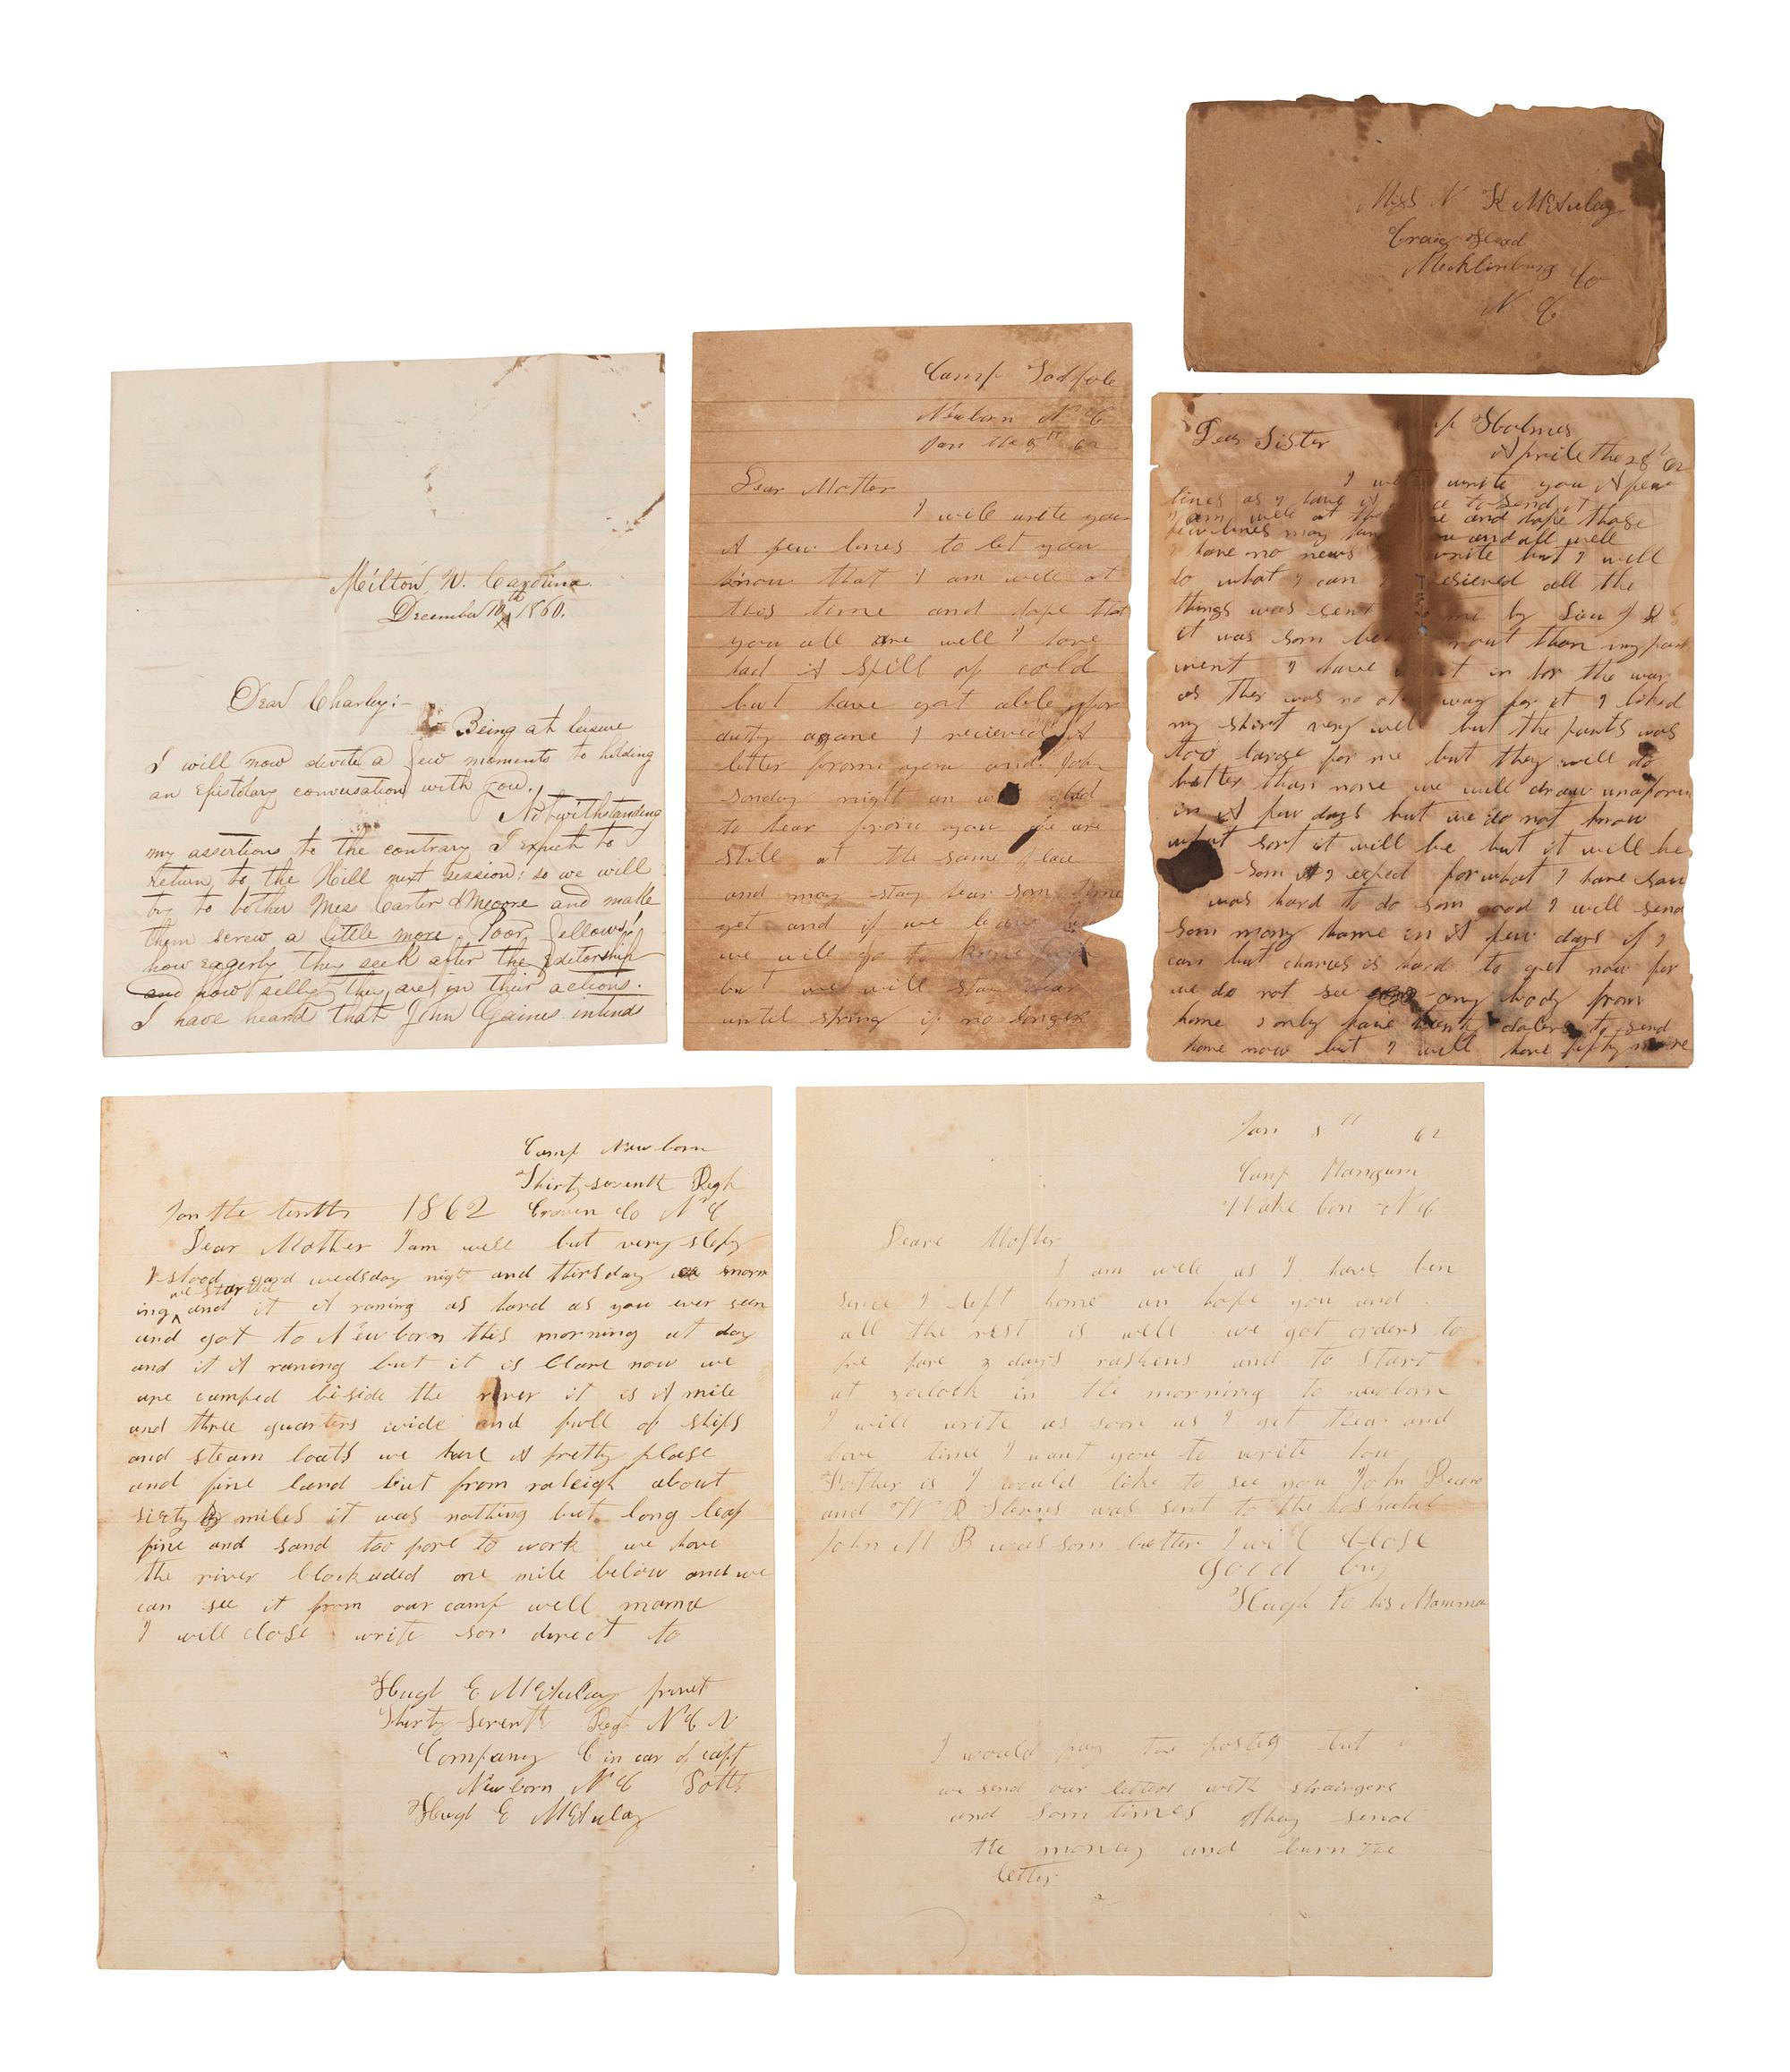 Milton, N. Carolina.
December 10th 1860.
Dear Charley:—
Being at leisure
I will now devote a few moments to holding
an Epistolary conversation with you.
Notwithstanding
my assertions to the contrary I expect to
return to the Hill next session; so we will
try to bother Mess Carter & Moore and make
them screw a little more. Poor fellows!
how eagerly they seek after the Editorship
and how selfish they are in their actions.
I have heard that John Gaines intends
Camp Tadpole
Newborn N C
Jan the 8th 62
Dear Mother
I will write you
A few lines to let you
know that I am well at
this time and hope that
you all are well I have
had A spill of cold
but have got able for
duty agane I recieved A
letter frome you and John
sonday night an was glad
to hear frome you we are
still at the same place
and may stay hear som time
yet and if we leave
we will go to
but we will stay hear
until spring if no longer
Miss N K McAulay
Craig Head
Mecklinburg Co
N C
Dear Sister
Holmes
Aprile the 28th 62
I will write you A few
lines as I have A to send it
I am well at the and hope these
few lines may and all well
I have no news write but I will
do what I can I recieved all the
things was sent me by
it was som than my
went I have in for the war
as ther was no other way for it I liked
my shirt very well but the pants was
too large for me but they will do
better than none we will draw unaform
in A few days but we do not know
what sort it will be but it will be
som I expect for what I have saw
was hard to do som good I will send
som mony home in A few days if I
can but chances is hard to get now for
we do not see any body from
home I only have twenty dolers to send
home now but I will have fifty more
Camp Newborn
Thirty seventh Regt
Jan the tenth 1862 Craven Co N C
Dear Mother I am well but very slepy
I stood gard wedsday night and thirsday morn
we started
ing and it A raning as hard as you ever seen
and got to Newborn this morning at day
and it A raning but it is Clare now we
are camped beside the river it is A mile
and three quarters wide and full of ships
and steam boats we have A pretty plase
and fine land but from raleigh about
sixty miles it was nothing but long leaf
pine and sand too pore to work we have
the river blockaded one mile below and we
can see it from our camp well mama
I will close write son direct to
Hugh E McAulay privet
Thirty seventh Regt N C V
Company C in car of capt
Newborn N C Potts
Hugh E McAulay
Jan 8th 62
Camp Mangum
Wake Con N C
Deare Mother
I am well as I have ben
since I left home an hope you and
all the rest is well we got orders to
pre pare 3 days rashens and to start
at oclock in the morning to newborn
I will write as soon as I get thear and
have time I want you to write how
Father is I would like to see you John
and W R was sent to the hospital
John M B was som better I will Close
good by
Hugh to his Mamma
I would pay the posteg but
we send our letters with straingers
and som times they send
the money and burn the
letter